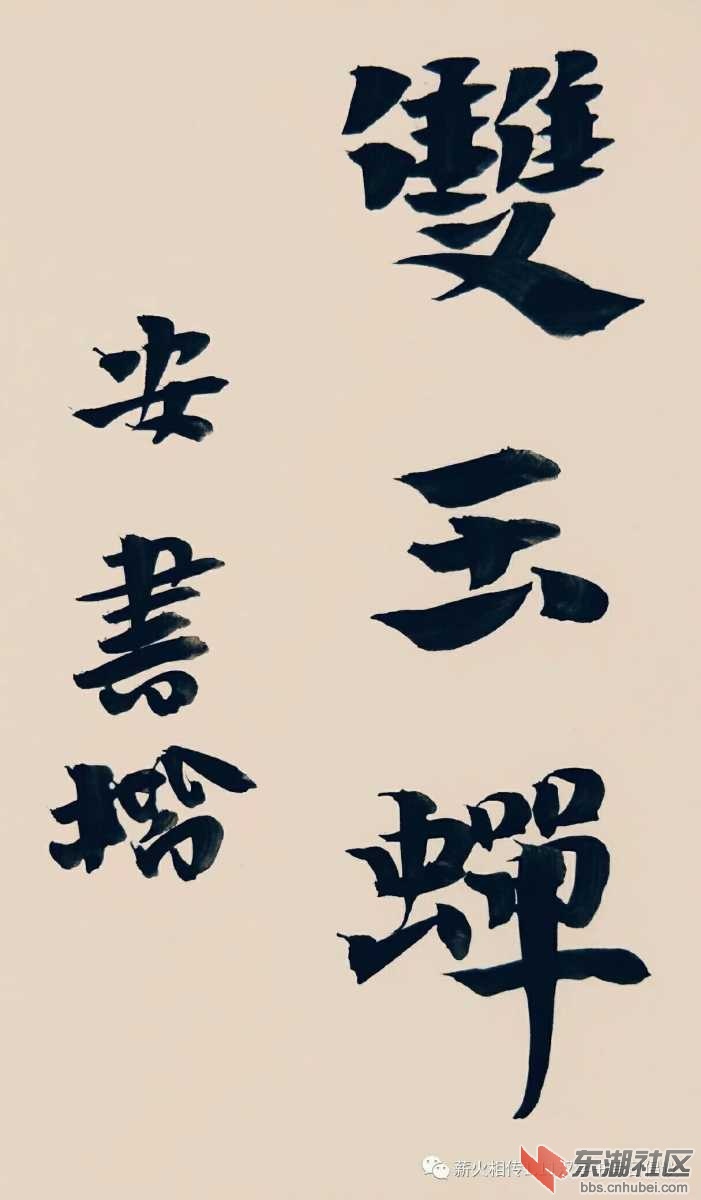 雙玉蟬
安書
薪火相传
东湖社区
bbs.cnhubei.com